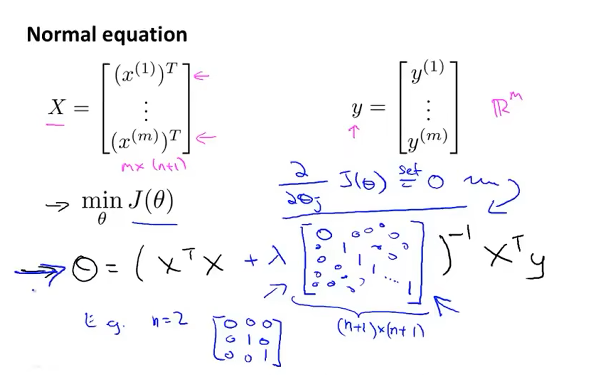 Normal equation
X = [ (x^(1))^T ⋮ (x^(m))^T ] ← ←
m × (n+1)
y = [ y^(1) ⋮ y^(m) ] ℝ^m
↑
→ min_θ J(θ)
∂/∂θ_j J(θ) set= 0
→ θ = ( X^T X + λ [ 0 0 0 0 0 1 0 0 0 1 0 0 0 ... 1 ] )^-1 X^T y
(n+1)×(n+1)
E.g. n=2 [ 0 0 0
0 1 0
0 0 1 ]